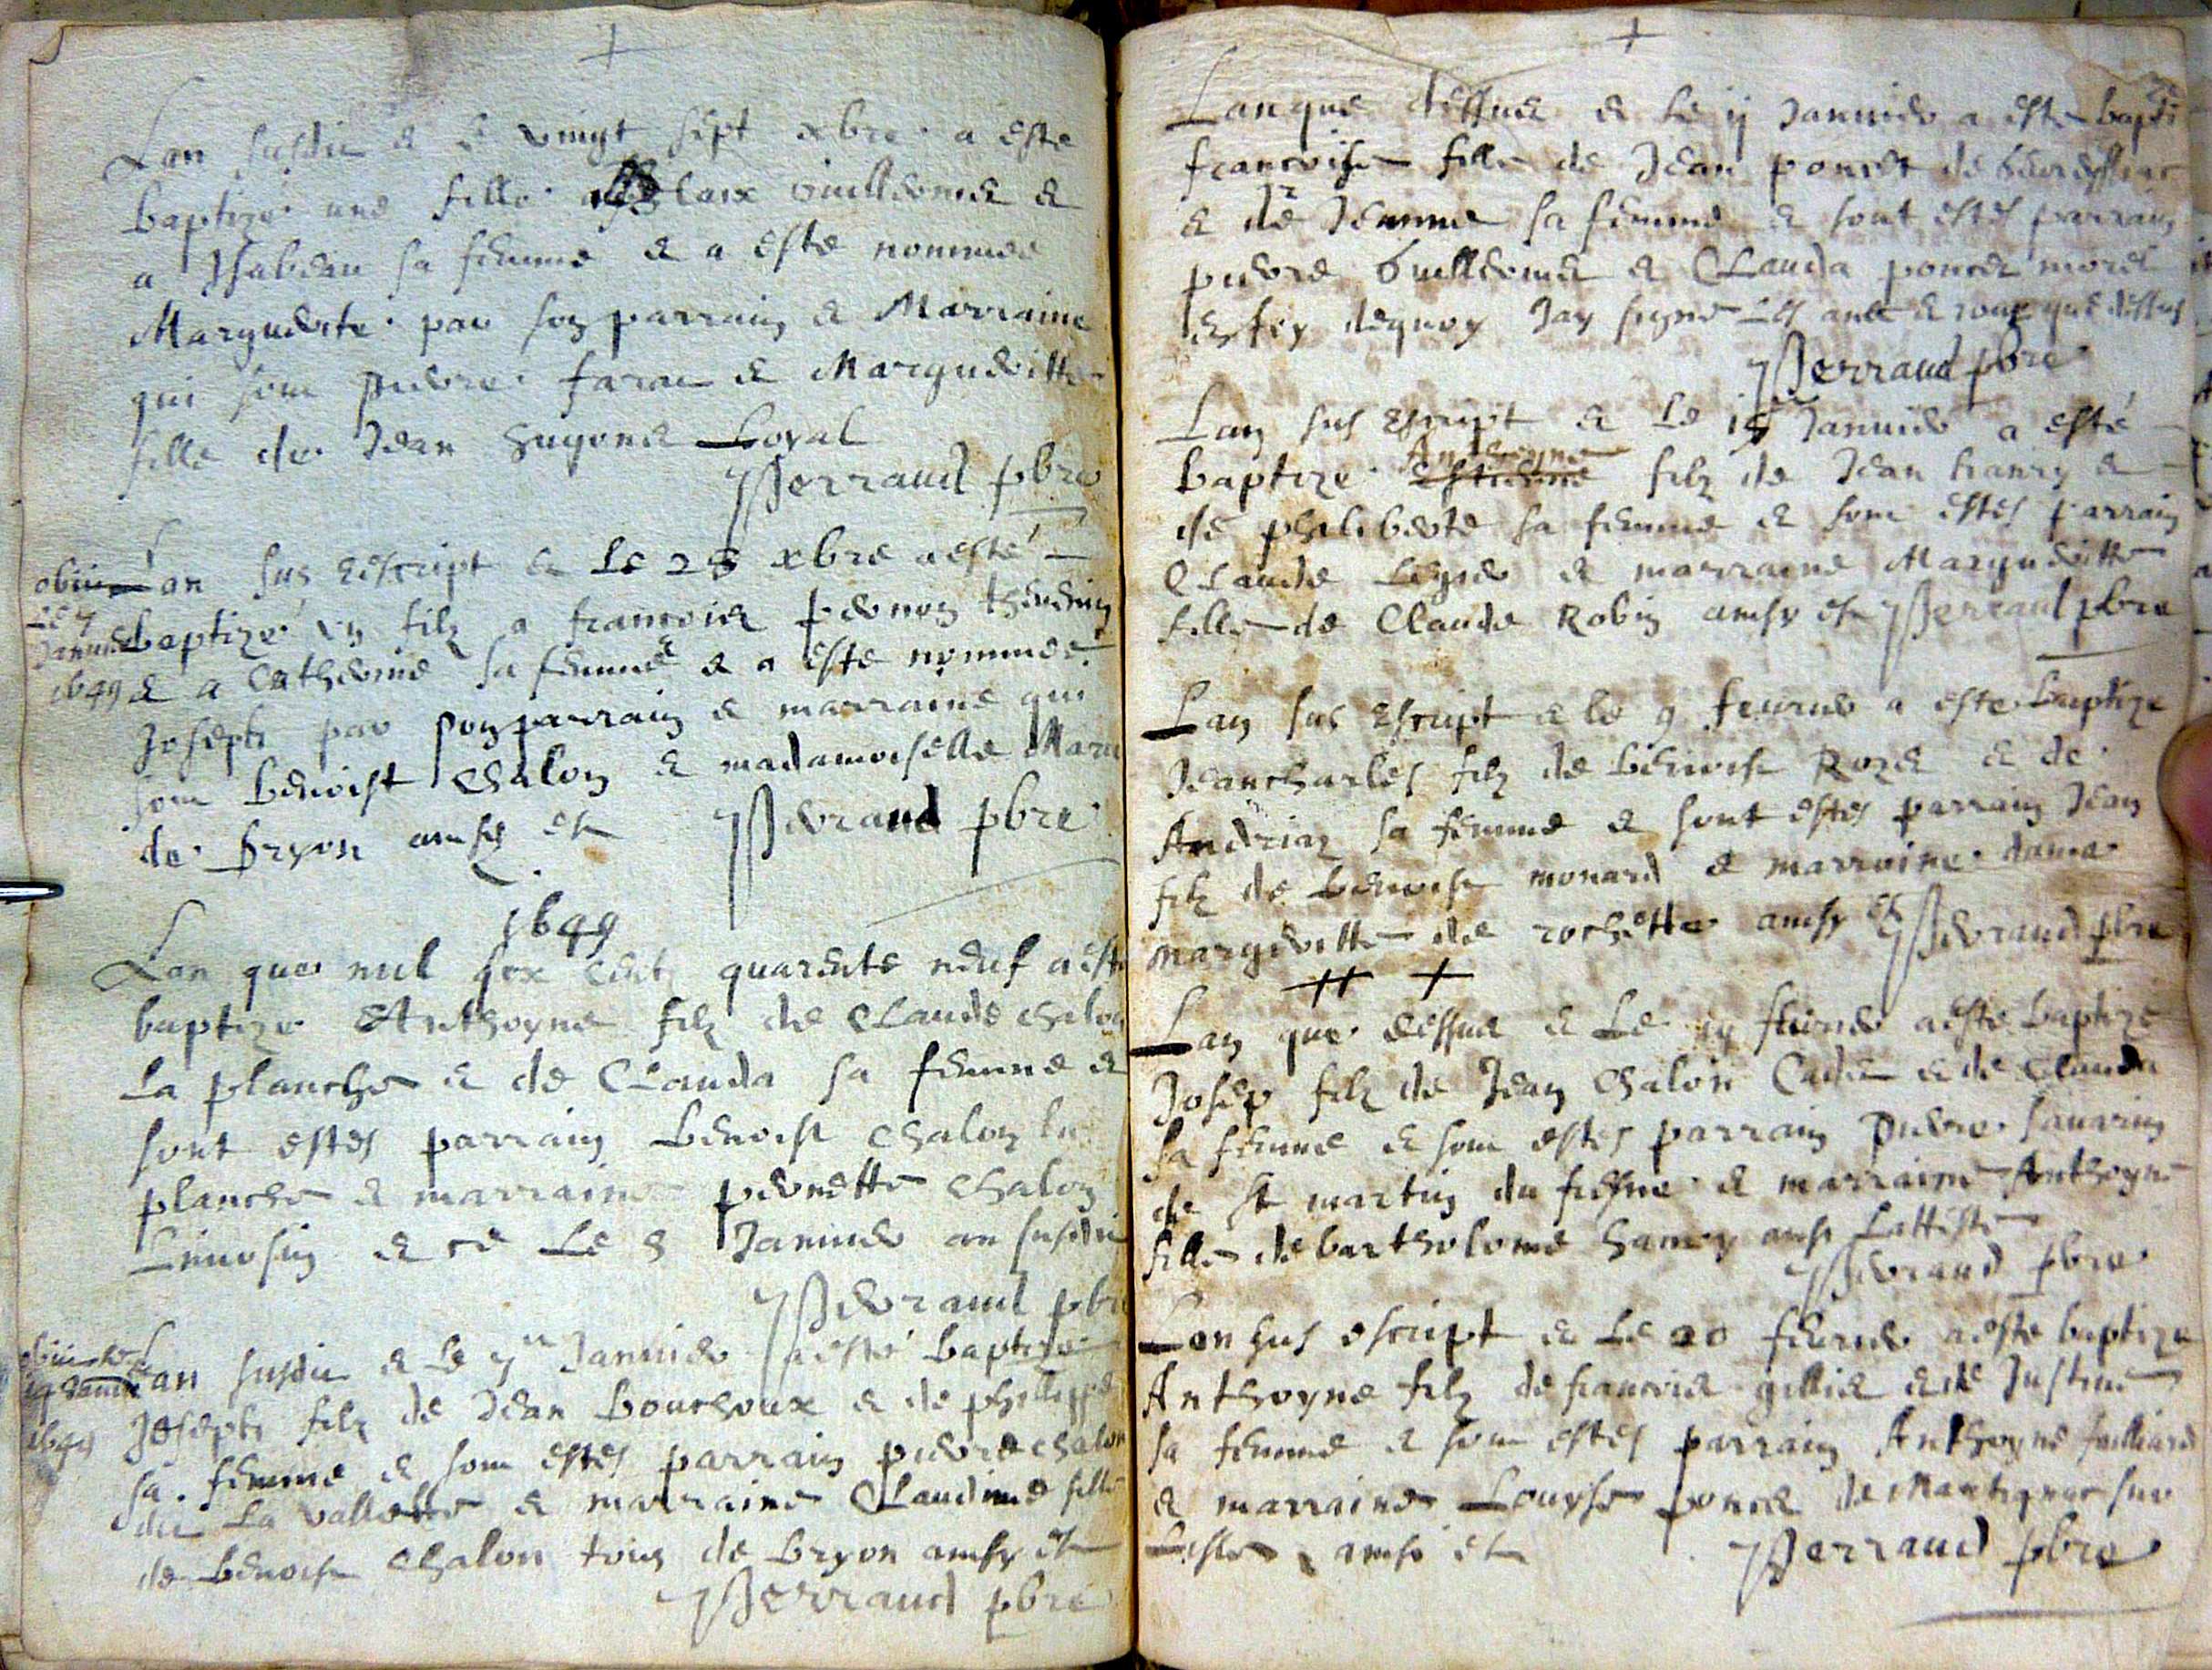 Lan susdit & le vingt sept xbre a este
baptize une fille a laix vuillerme &
a Jsabeau sa femme & a este nommee
Marguerite par son parrain & Marraine
qui sont pierre farau & Margueritte
fille de Jean hugone Loyal
Perraud pbre
Lan sus escript & le 28 xbre a esté
baptizé un filz a francois pernon thevenin
& a Catherine sa femme & a este nommee
Joseph par son parrain & marraine qui
sont Benoist Chalon & madamoiselle Marie
de bryon ainsy est Perraud pbre
obiit
le 7
Januier
1649
1649
Lan que mil six centz quarente neuf a este
baptize Anthoyne filz de Claude chalon
la planche & de Clauda sa femme &
sont estes parrain Benoist chalon la
planche & marraine pernette chalon
Limosin & ce le 8 Januier an susdit
Perraud pbre
Lan susdit & le 7 Januier a esté baptize
Joseph filz de Jean Bouchoux & de phelippe
sa femme & sont estes parrain pierre chalon
dit la vallette & marraine Claudine fille
de Benoist chalon tous de bryon ainsy est
Perraud pbre
obiit le
19 Januier
1649
Lan que dessus & le ij Januier a este bapti
francoise fille de Jean poncet de
& de Jeanne sa femme & sont estes parrain
pierre vuillerme & Clauda poncet mores
en foy dequoy Jay signé les an & jour que dessus
Perraud pbre
Lan sus escript & le 15 Januier a esté
baptize Anthoyne filz de Jean hanry &
de philiberte sa femme & sont estes parrain
Claude Legier & marraine Margueritte
fille de Claude Robin ainsy est Perraud pbre
Lan sus escript & le 9 feurier a este baptize
Jeancharles filz de benoist Roze & de
Andriaz sa femme & sont estes parrain Jean
filz de benoist monard & marraine dame
margueritte de rochette ainsy est Perraud pbre
Lan que dessus & le feurier a este baptizé
Josep filz de Jean Chalon Cadet & de Clauda
sa femme & sont estes parrain pierre sauarin
de st martin du fresne & marraine Anthoyne
fille de bartholome hanry ainsi Latteste
Perraud pbre
Lan sus escript & le 20 feurier a este baptize
Anthoyne filz de francois gillié & de Justine
sa femme & sont estes parrain Anthoyne
& marraine Louyse poncet de Martignac sur
ainsi est Perraud pbre